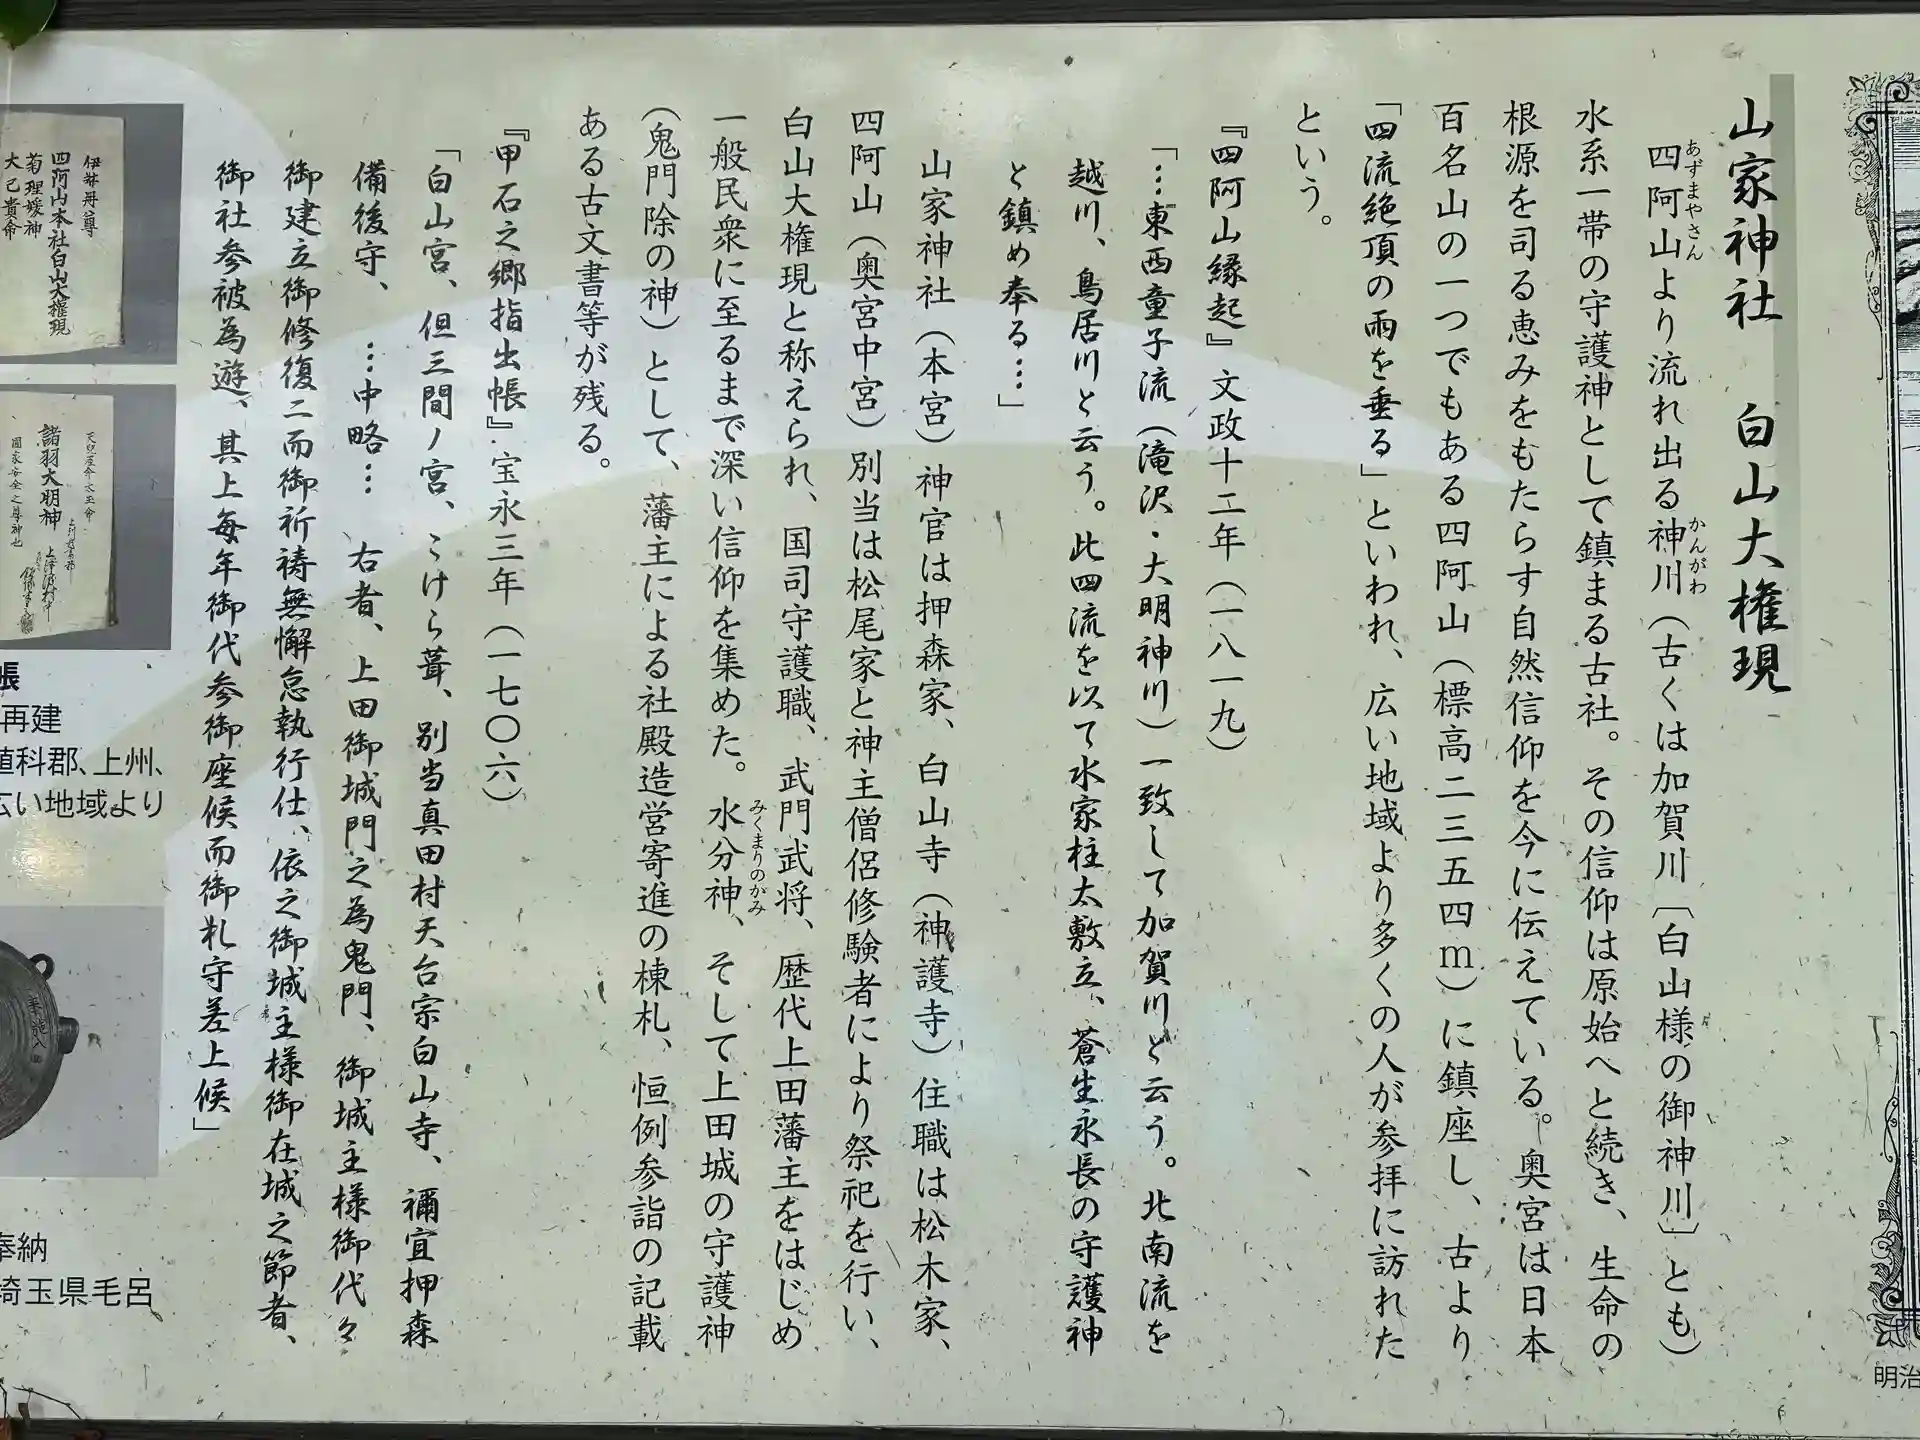 山家神社　白山大権現
四阿山より流れ出る神川（古くは加賀川〔白山様の御神川〕とも）
あずまやさん
かんがわ
水系一帯の守護神として鎮まる古社。その信仰は原始へと続き、生命の
根源を司る恵みをもたらす自然信仰を今に伝えている。奥宮は日本
百名山の一つでもある四阿山（標高二三五四ｍ）に鎮座し、古より
「四流絶頂の雨を垂る」といわれ、広い地域より多くの人が参拝に訪れた
という。
『四阿山縁起』文政十二年（一八一九）
「…東西童子流（滝沢・大明神川）一致して加賀川と云う。北南流を
越川、鳥居川と云う。此四流を以て水家柱太敷立、蒼生永長の守護神
と鎮め奉る…」
山家神社（本宮）神官は押森家、白山寺（神護寺）住職は松木家、
四阿山（奥宮中宮）別当は松尾家と神主僧侶修験者により祭祀を行い、
白山大権現と称えられ、国司守護職、武門武将、歴代上田藩主をはじめ
一般民衆に至るまで深い信仰を集めた。水分神、そして上田城の守護神
みくまりのがみ
（鬼門除の神）として、藩主による社殿造営寄進の棟札、恒例参詣の記載
ある古文書等が残る。
『甲石之郷指出帳』宝永三年（一七〇六）
「白山宮、但三間ノ宮、こけら葺、別当真田村天台宗白山寺、禰宜押森
備後守、…中略…　右者、上田御城門之為鬼門、御城主様御代々
御建立御修復二而御祈祷無懈怠執行仕、依之御城主様御在城之節者、
御社参被為遊、其上毎年御代参御座候而御札守差上候」
伊弉冊尊
四阿山本社白山大権現
菊理媛神
大己貴命
諸羽大明神
國家安全之尊神也
帳
再建
埴科郡、上州、
広い地域より
奉納
埼玉県毛呂
明治